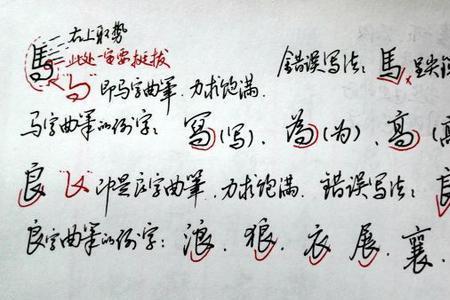 右上取势
馬 此处一定要挺拔
即马字曲笔,力求饱满. 错误写法:馬
马字曲笔的例字:寫(写)、為(为)、高(
良 即是良字曲笔,力求饱满. 错误写法:
良字曲笔的例字:浪、狼、衣、展、襄、